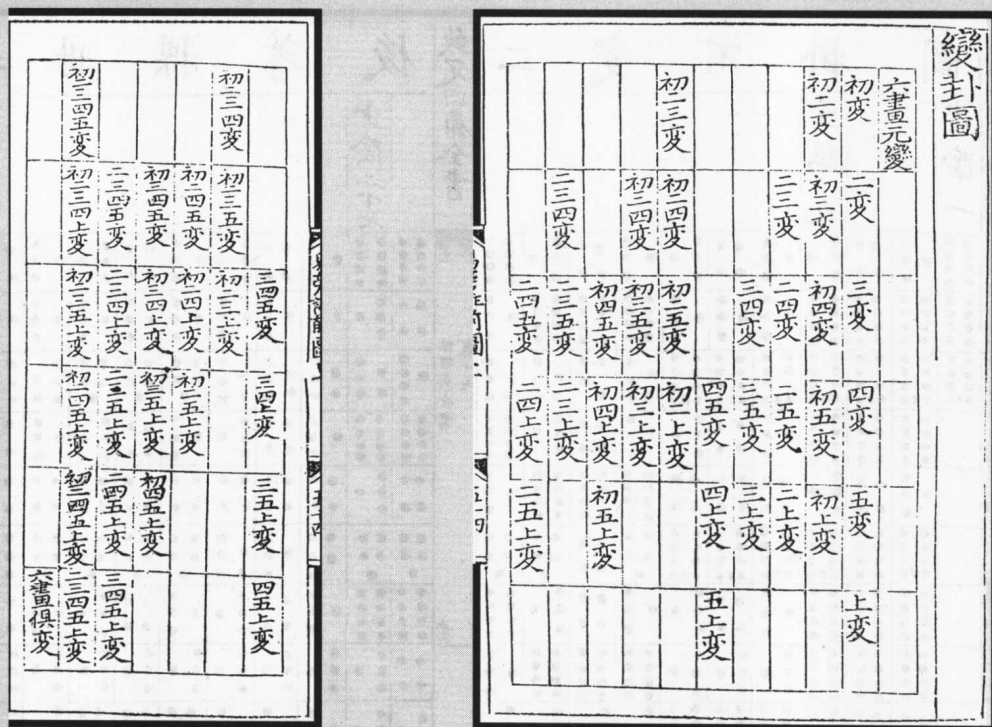 變卦圖
六畫元變
初変 二変 三変 四変 五変 上変
初二変 初三変 初四変 初五変 初上変
二三変 二四変 二五変 二上変
三四変 三五変 三上変
四五変 四上変 五上変
初二三変 初二四変 初二五変 初二上変
初三四変 初三五変 初三上変
初四五変 初四上変 初五上変
二三四変 二三五変 二三上変
二四五変 二四上変 二五上変
三四五変 三四上変 三五上変 四五上変
初二三四変 初二三五変 初二三上変
初二四五変 初二四上変 初二五上変
初三四五変 初三四上変 初三五上変 初四五上変
二三四五変 二三四上変 二三五上変 二四五上変 三四五上変
初二三四五変 初二三四上変 初二三五上変 初二四五上変 初三四五上変 二三四五上変
六畫俱変